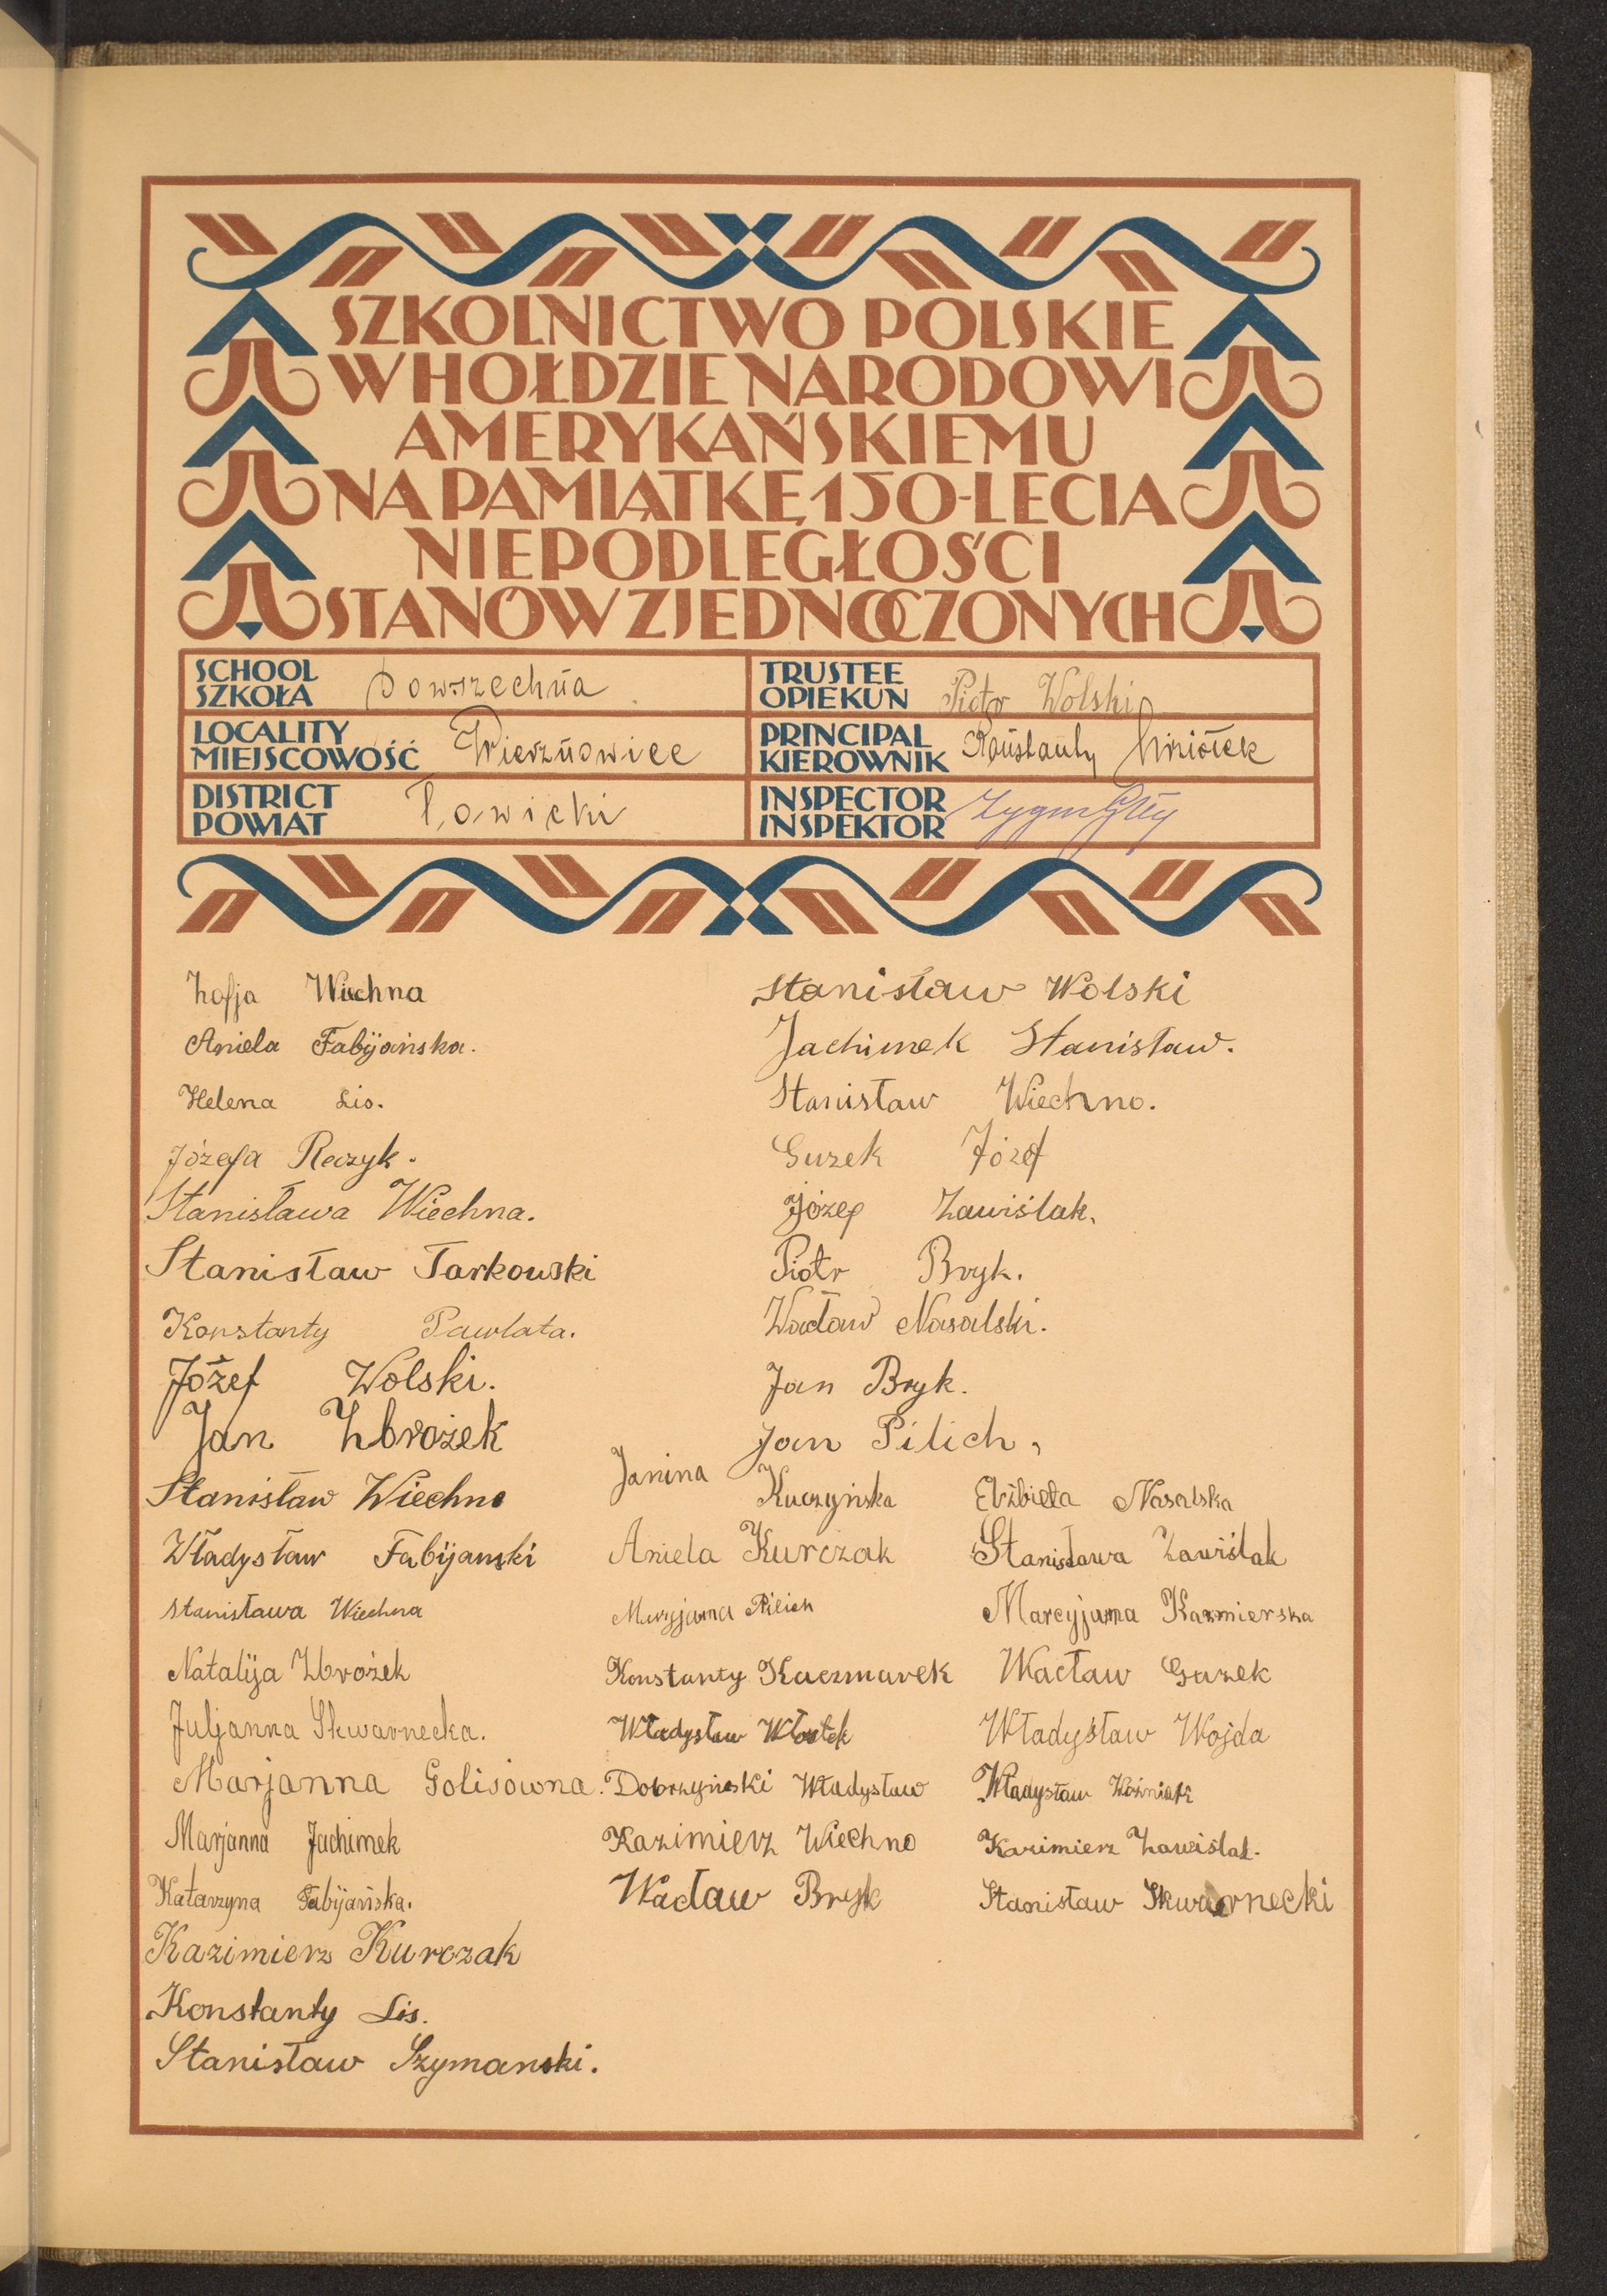 SZKOLNICTWO POLSKIE
W HOŁDZIE NARODOWI
AMERYKAŃSKIEMU
NA PAMIĄTKĘ 150-LECIA
NIEPODLEGŁOŚCI
STANÓW ZJEDNOCZONYCH
SCHOOL
SZKOŁA Powszechna
TRUSTEE
OPIEKUN Piotr Wolski
LOCALITY
MIEJSCOWOŚĆ Wierznowice
PRINCIPAL
KIEROWNIK Konstanty
DISTRICT
POWIAT Łowicki
INSPECTOR
INSPEKTOR
Zofja Wiechna
Aniela Fabijańska.
Helena Lis.
Józefa Reczyk.
Stanisława Wiechna.
Stanisław Tarkowski
Konstanty Pawlata.
Józef Wolski.
Jan Zbrożek
Stanisław Wiechno
Władysław Fabijanski
Stanisława Wiechna
Natalija Zbrożek
Juljanna Skwarnecka.
Marjanna Golisówna.
Marjanna Jachimek
Katarzyna Fabijańska.
Kazimierz Kurczak
Konstanty Lis.
Stanisław Szymanski.
Stanisław Wolski
Jachimek Stanisław.
Stanisław Wiechno.
Guzek Józef
Józef Zawiślak.
Piotr Bryk.
Wacław Nasalski.
Jan Bryk.
Jan Pilich,
Janina Kuczyńska
Aniela Kurczak
Maryjanna Pilich
Konstanty Kaczmarek
Władysław Włostek
Dobrzyński Władysław
Kazimierz Wiechno
Wacław Bryk
Elżbieta Nasalska
Stanisława Zawiślak
Marcyjanna Kazmierska
Wacław Guzek
Władysław Wojda
Władysław Woźniak
Kazimierz Zawiślak.
Stanisław Skwarnecki